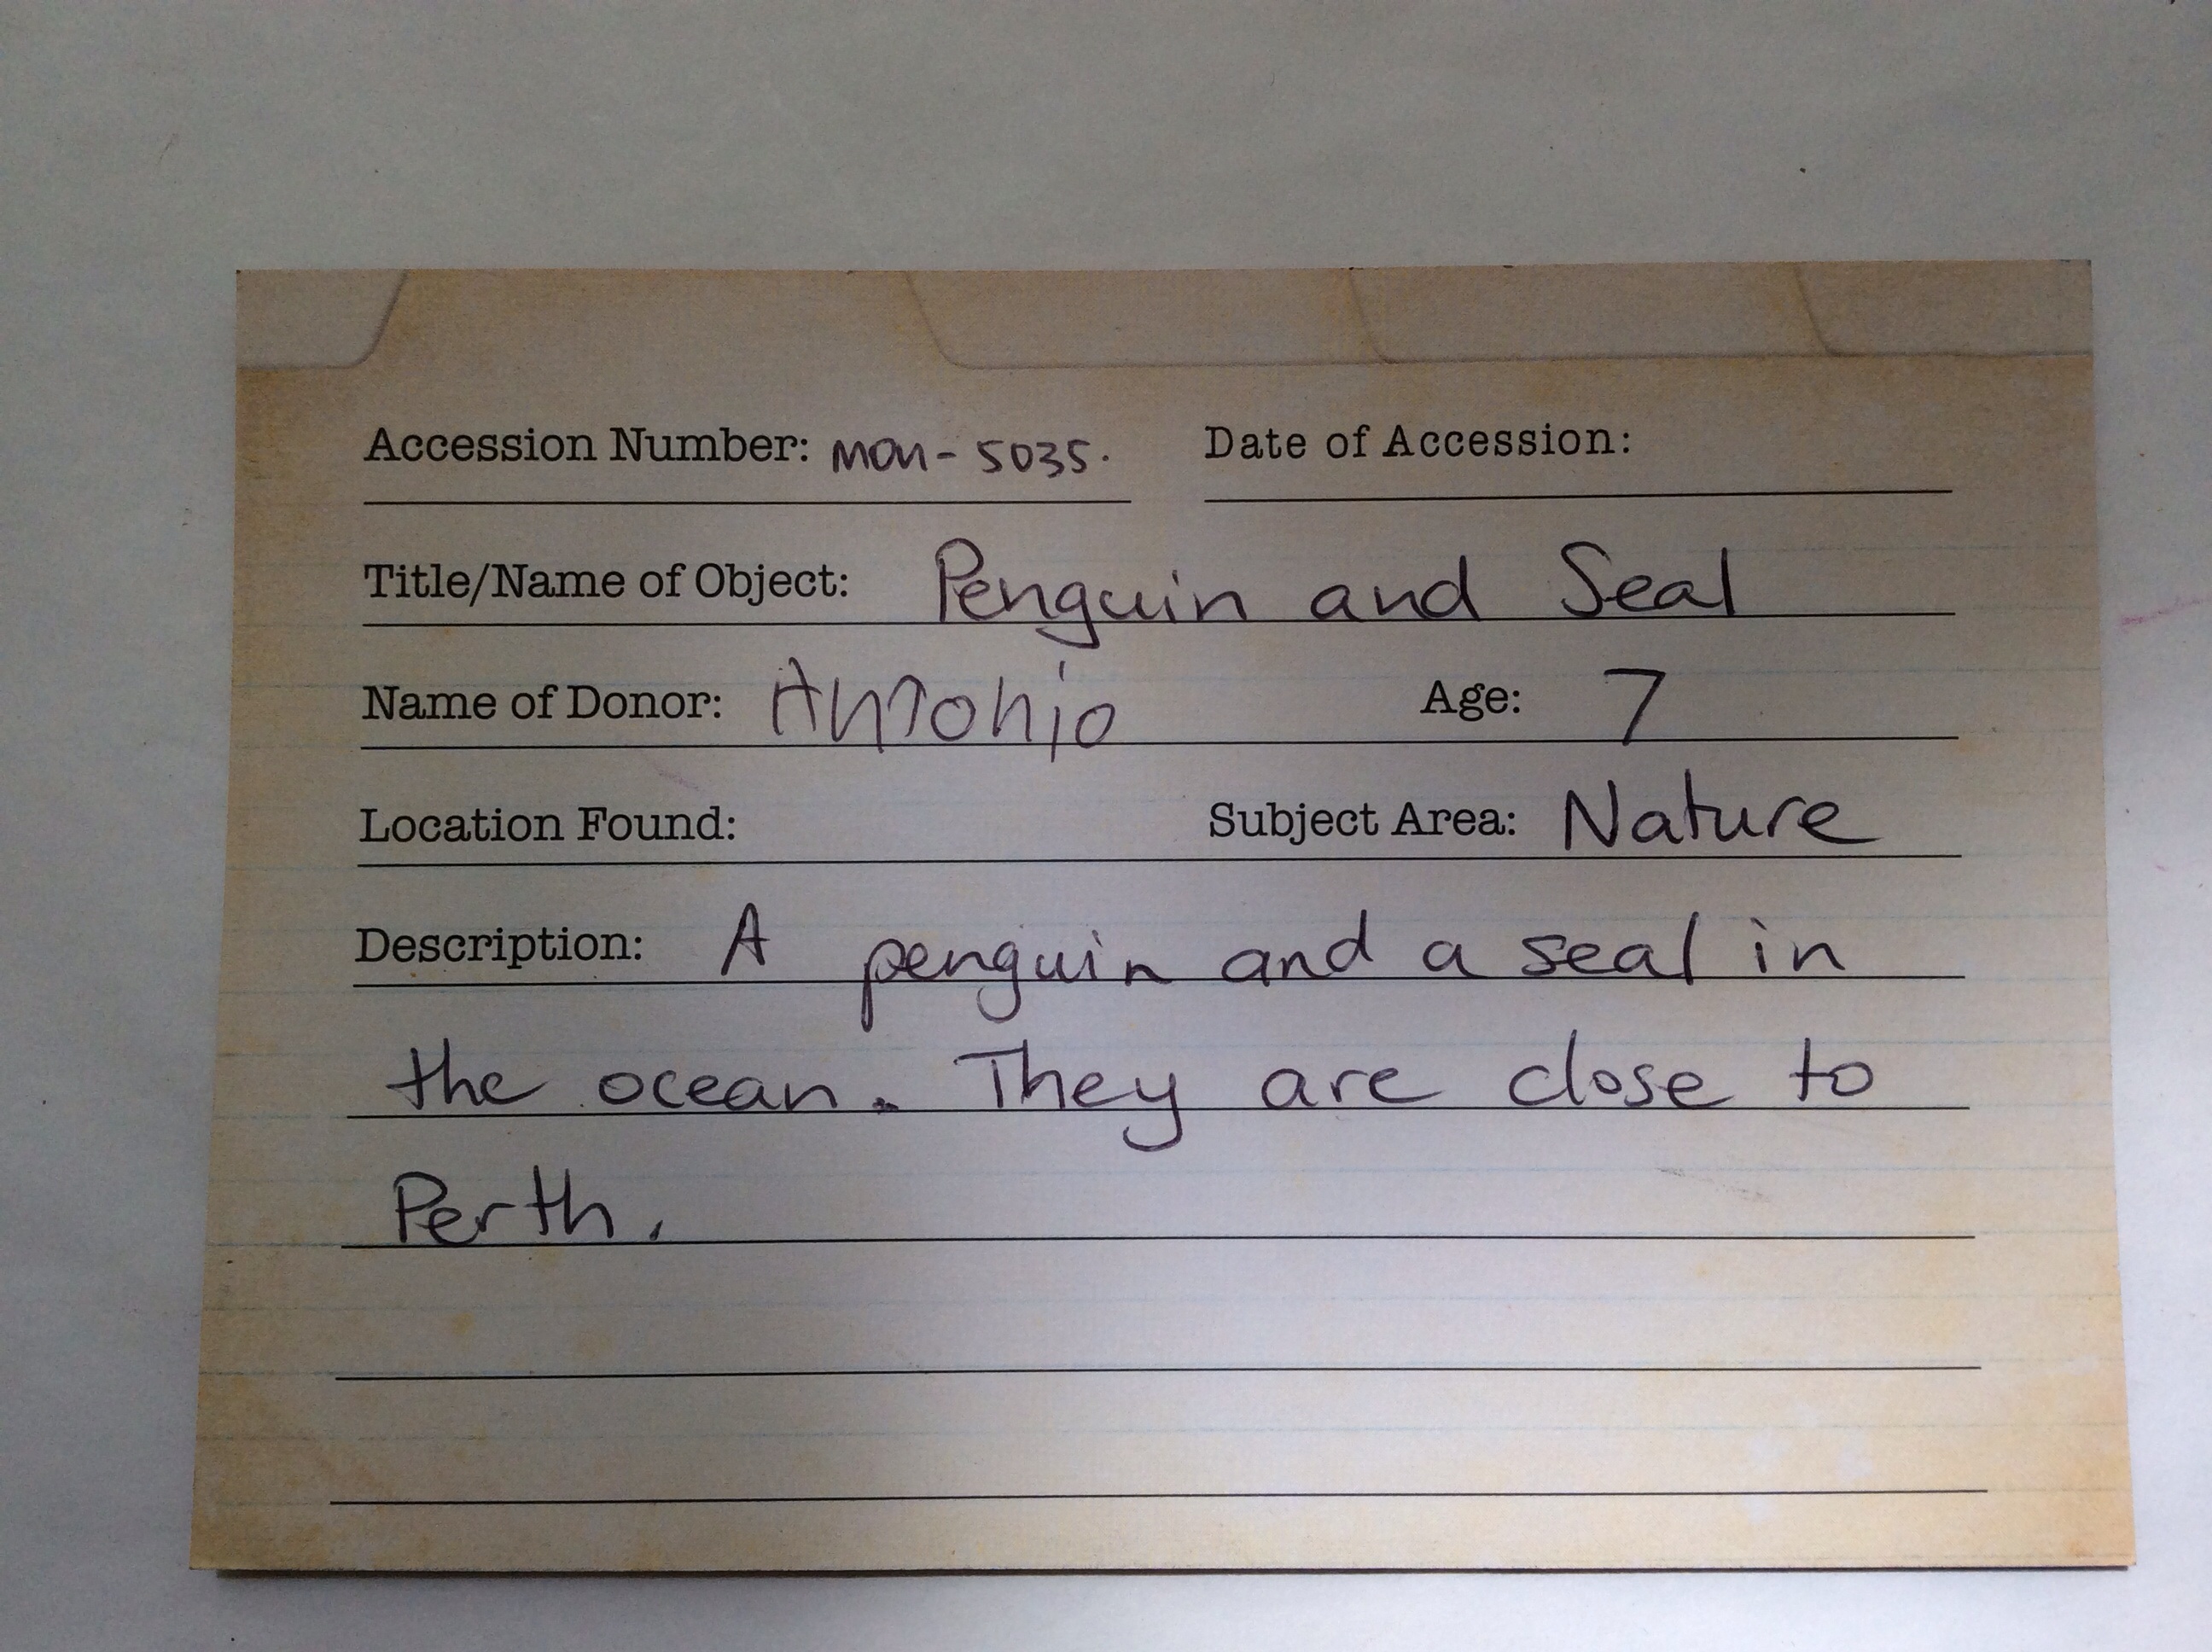 Accession Number: MON-5035. Date of Accession:
Title/Name of Object: Penguin and Seal
Name of Donor: Antonio Age: 7
Location Found: Subject Area: Nature
Description: A penguin and a seal in
the ocean. They are close to
Perth.